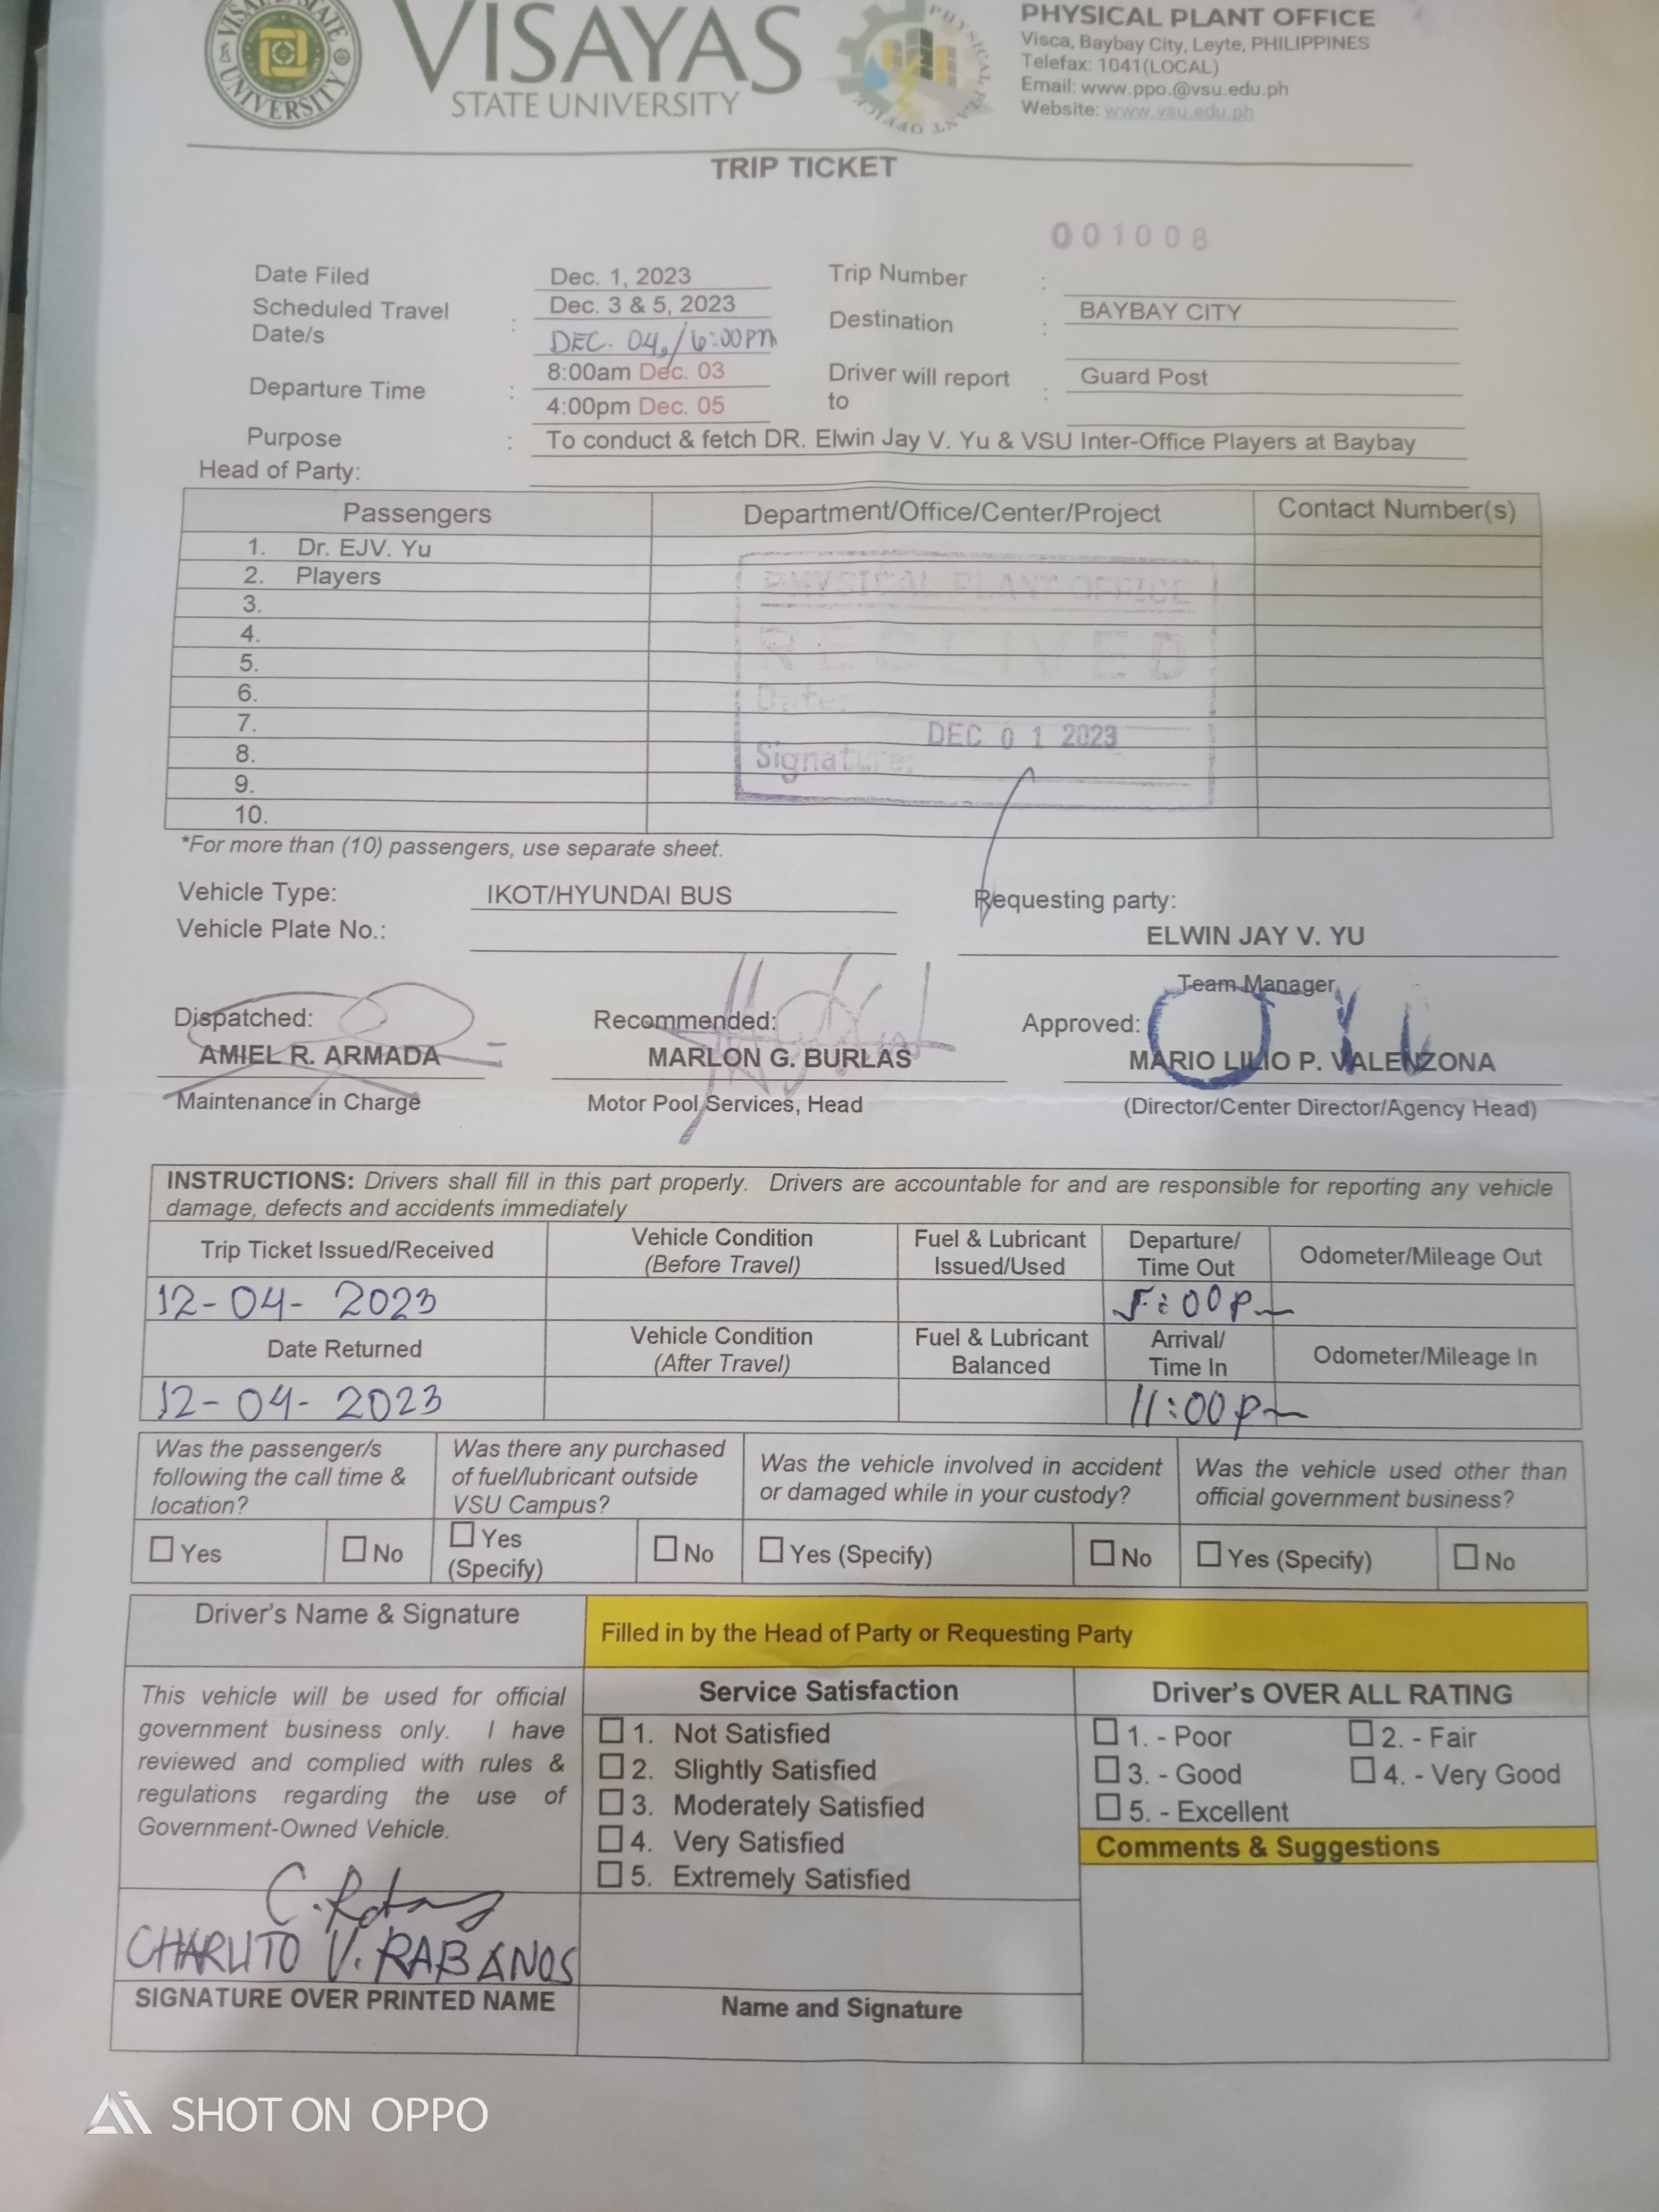 VISAYAS STATE UNIVERSITY
VISAYAS
STATE UNIVERSITY
PHYSICAL PLANT OFFICE
PHYSICAL PLANT OFFICE
Visca, Baybay City, Leyte, PHILIPPINES
Telefax: 1041(LOCAL)
Email: www.ppo.@vsu.edu.ph
Website: www.vsu.edu.ph
TRIP TICKET
001008
Date Filed Dec. 1, 2023 Trip Number :
Scheduled Travel Date/s : Dec. 3 & 5, 2023 Destination : BAYBAY CITY
DEC. 04, / 6:00PM
Departure Time : 8:00am Dec. 03 Driver will report to : Guard Post
4:00pm Dec. 05
Purpose : To conduct & fetch DR. Elwin Jay V. Yu & VSU Inter-Office Players at Baybay
Head of Party:
Passengers Department/Office/Center/Project Contact Number(s)
1. Dr. EJV. Yu
2. Players
3.
4.
5.
6.
7.
8.
9.
10.
PHYSICAL PLANT OFFICE
RECEIVED
Date:
DEC 01 2023
Signature:
*For more than (10) passengers, use separate sheet.
Vehicle Type: IKOT/HYUNDAI BUS Requesting party:
Vehicle Plate No.: ELWIN JAY V. YU
Team Manager
Dispatched: Recommended: Approved:
AMIEL R. ARMADA MARLON G. BURLAS MARIO LILIO P. VALENZONA
Maintenance in Charge Motor Pool Services, Head (Director/Center Director/Agency Head)
INSTRUCTIONS: Drivers shall fill in this part properly. Drivers are accountable for and are responsible for reporting any vehicle
damage, defects and accidents immediately
Trip Ticket Issued/Received Vehicle Condition (Before Travel) Fuel & Lubricant Issued/Used Departure/ Time Out Odometer/Mileage Out
12-04-2023 5:00pm
Date Returned Vehicle Condition (After Travel) Fuel & Lubricant Balanced Arrival/ Time In Odometer/Mileage In
12-04-2023 11:00pm
Was the passenger/s following the call time & location? Was there any purchased of fuel/lubricant outside VSU Campus? Was the vehicle involved in accident or damaged while in your custody? Was the vehicle used other than official government business?
Yes No Yes (Specify) No Yes (Specify) No Yes (Specify) No
Driver's Name & Signature Filled in by the Head of Party or Requesting Party
This vehicle will be used for official
government business only. I have
reviewed and complied with rules &
regulations regarding the use of
Government-Owned Vehicle.
Service Satisfaction
1. Not Satisfied
2. Slightly Satisfied
3. Moderately Satisfied
4. Very Satisfied
5. Extremely Satisfied
Driver's OVER ALL RATING
1. - Poor 2. - Fair
3. - Good 4. - Very Good
5. - Excellent
Comments & Suggestions
CHARLITO V. RABANOS
SIGNATURE OVER PRINTED NAME Name and Signature
SHOT ON OPPO